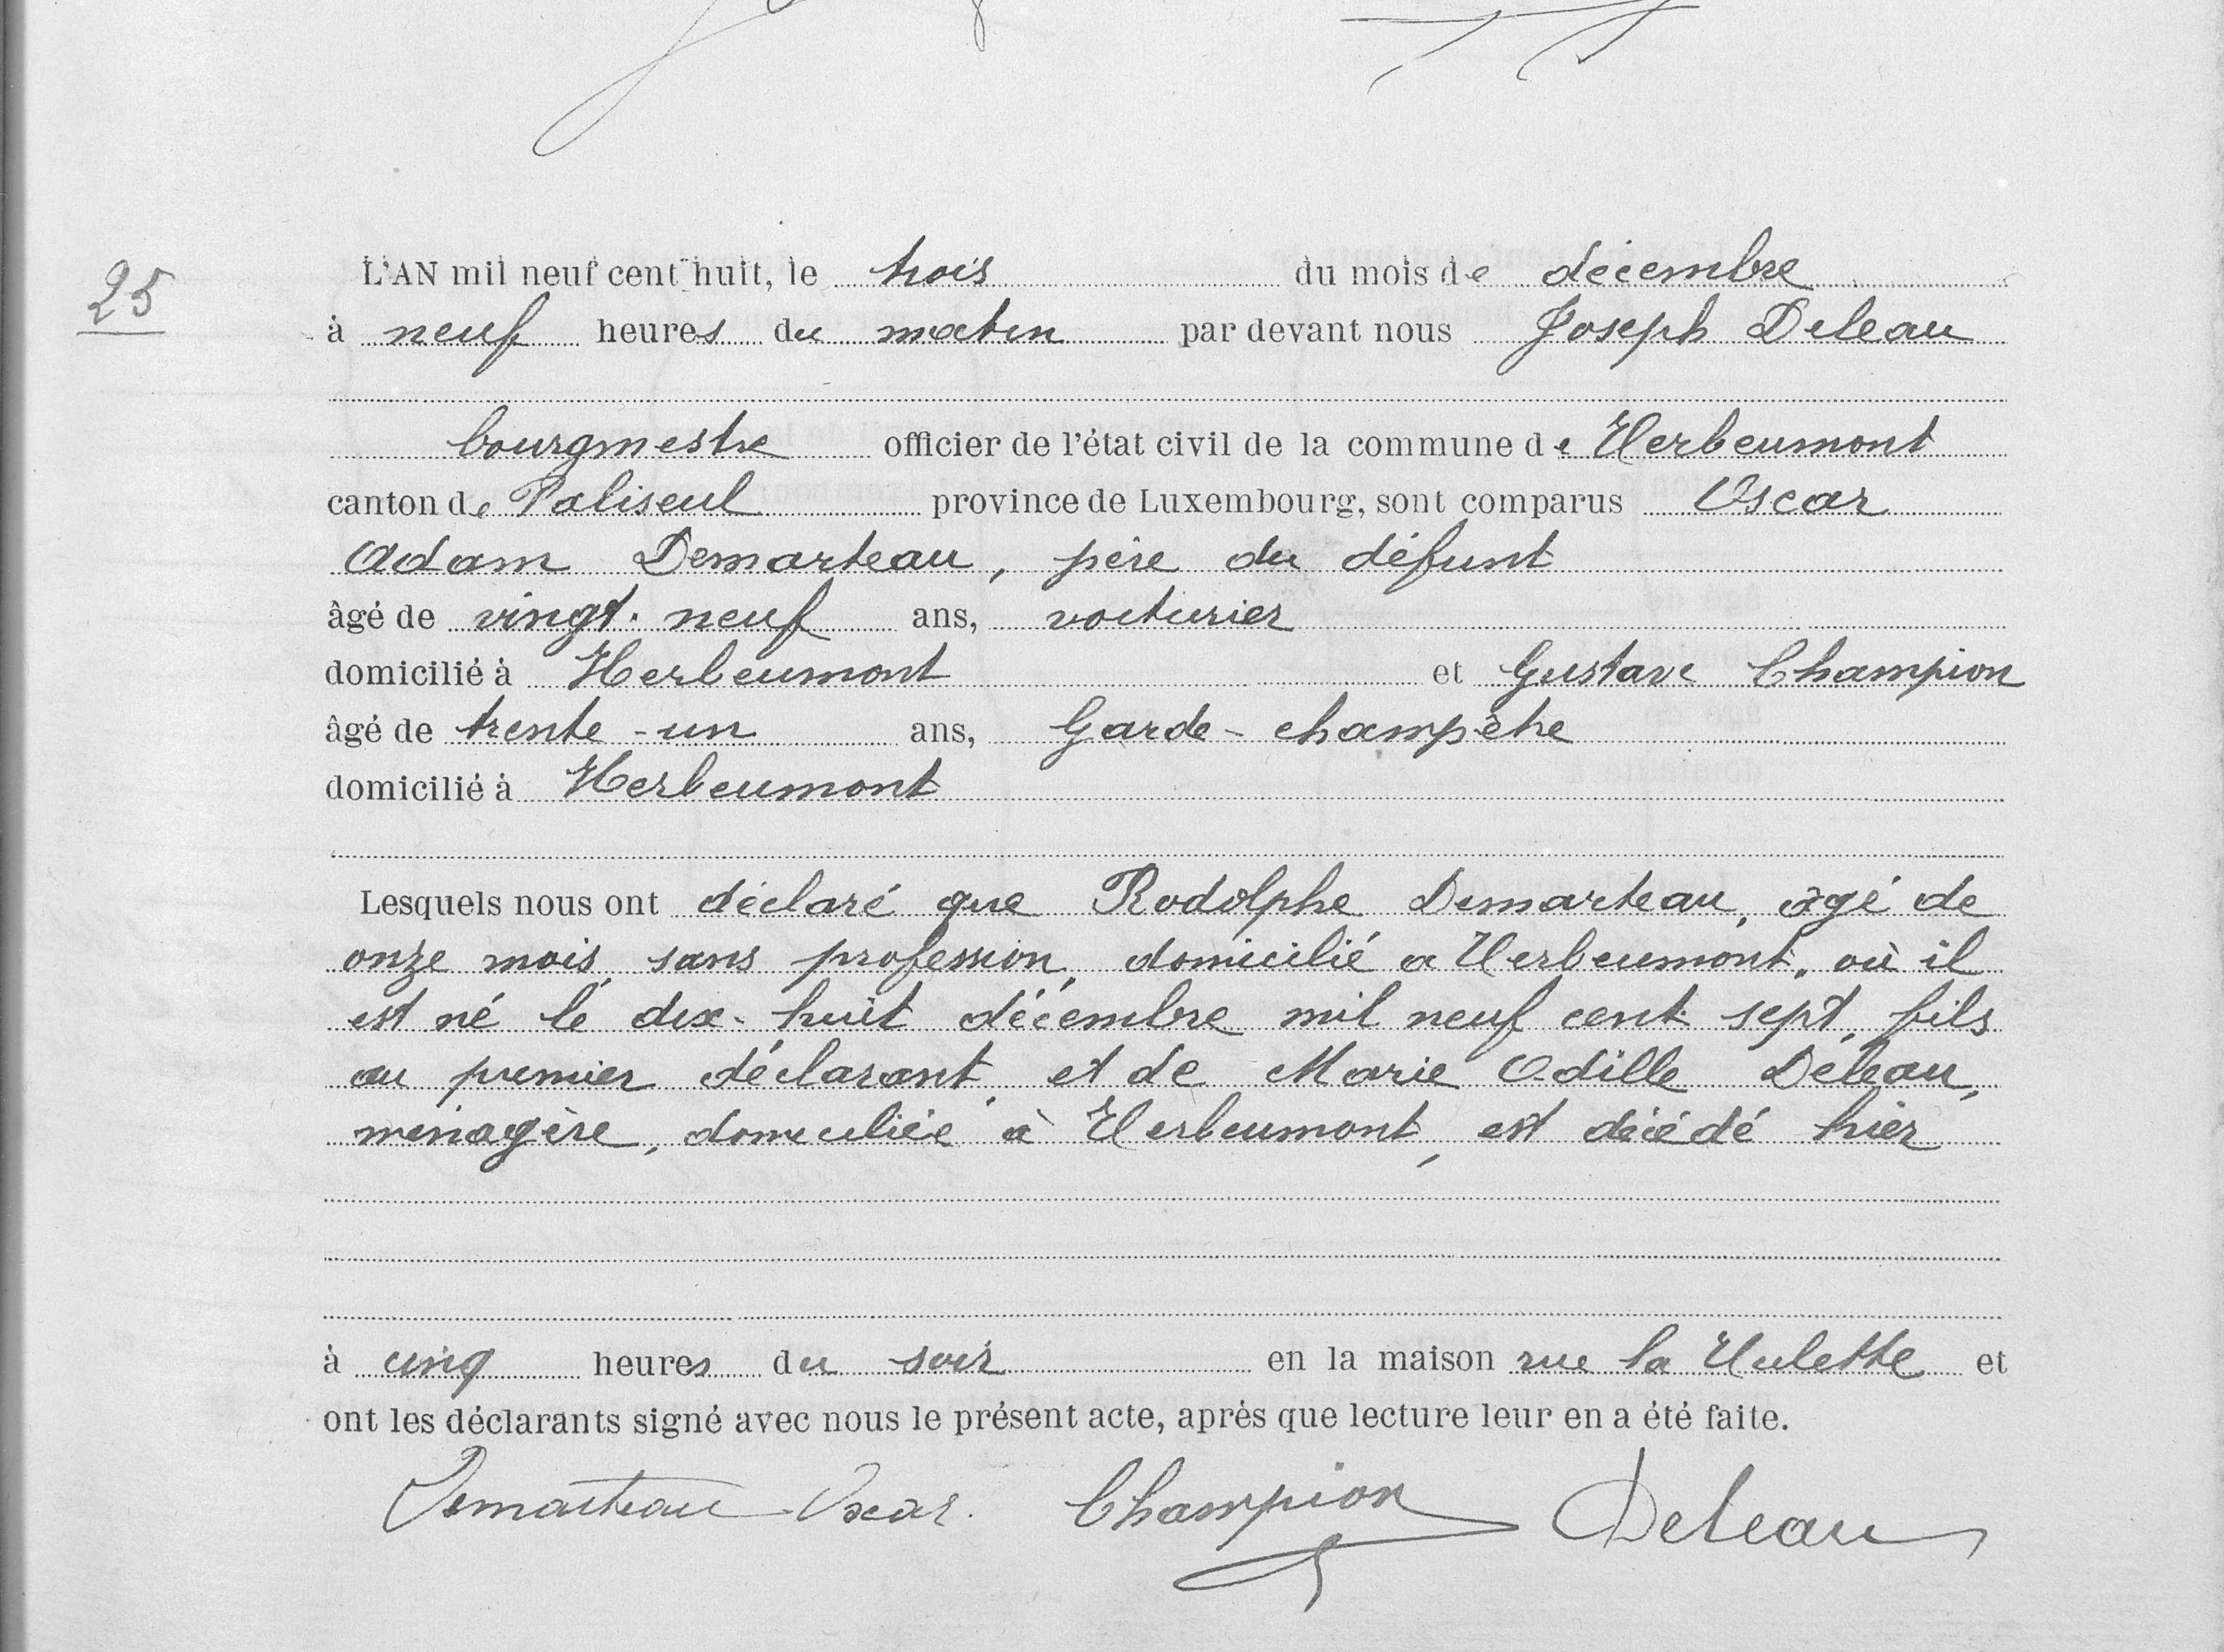 25
L'AN mil neuf cent huit, le trois du mois de décembre
à neuf heures du matin par devant nous Joseph Deleau
bourgmestre officier de l'état civil de la commune de Herbeumont
canton de Paliseul province de Luxembourg, sont comparus Oscar
Adam Demarteau, père du défunt
âgé de vingt-neuf ans, voiturier
domicilié à Herbeumont et Gustave Champion
âgé de trente-un ans, Garde-champêtre
domicilié à Herbeumont
Lesquels nous ont déclaré que Rodolphe Demarteau, âgé de
onze mois, sans profession, domicilié à Herbeumont, où il
est né le dix-huit décembre mil neuf cent sept, fils
au premier déclarant, et de Marie Odille Deleau,
ménagère, domiciliée à Herbeumont, est décédé hier
à cinq heures du soir en la maison rue la Hulette et
ont les déclarants signé avec nous le présent acte, après que lecture leur en a été faite.
Demarteau Oscar. Champion Deleau